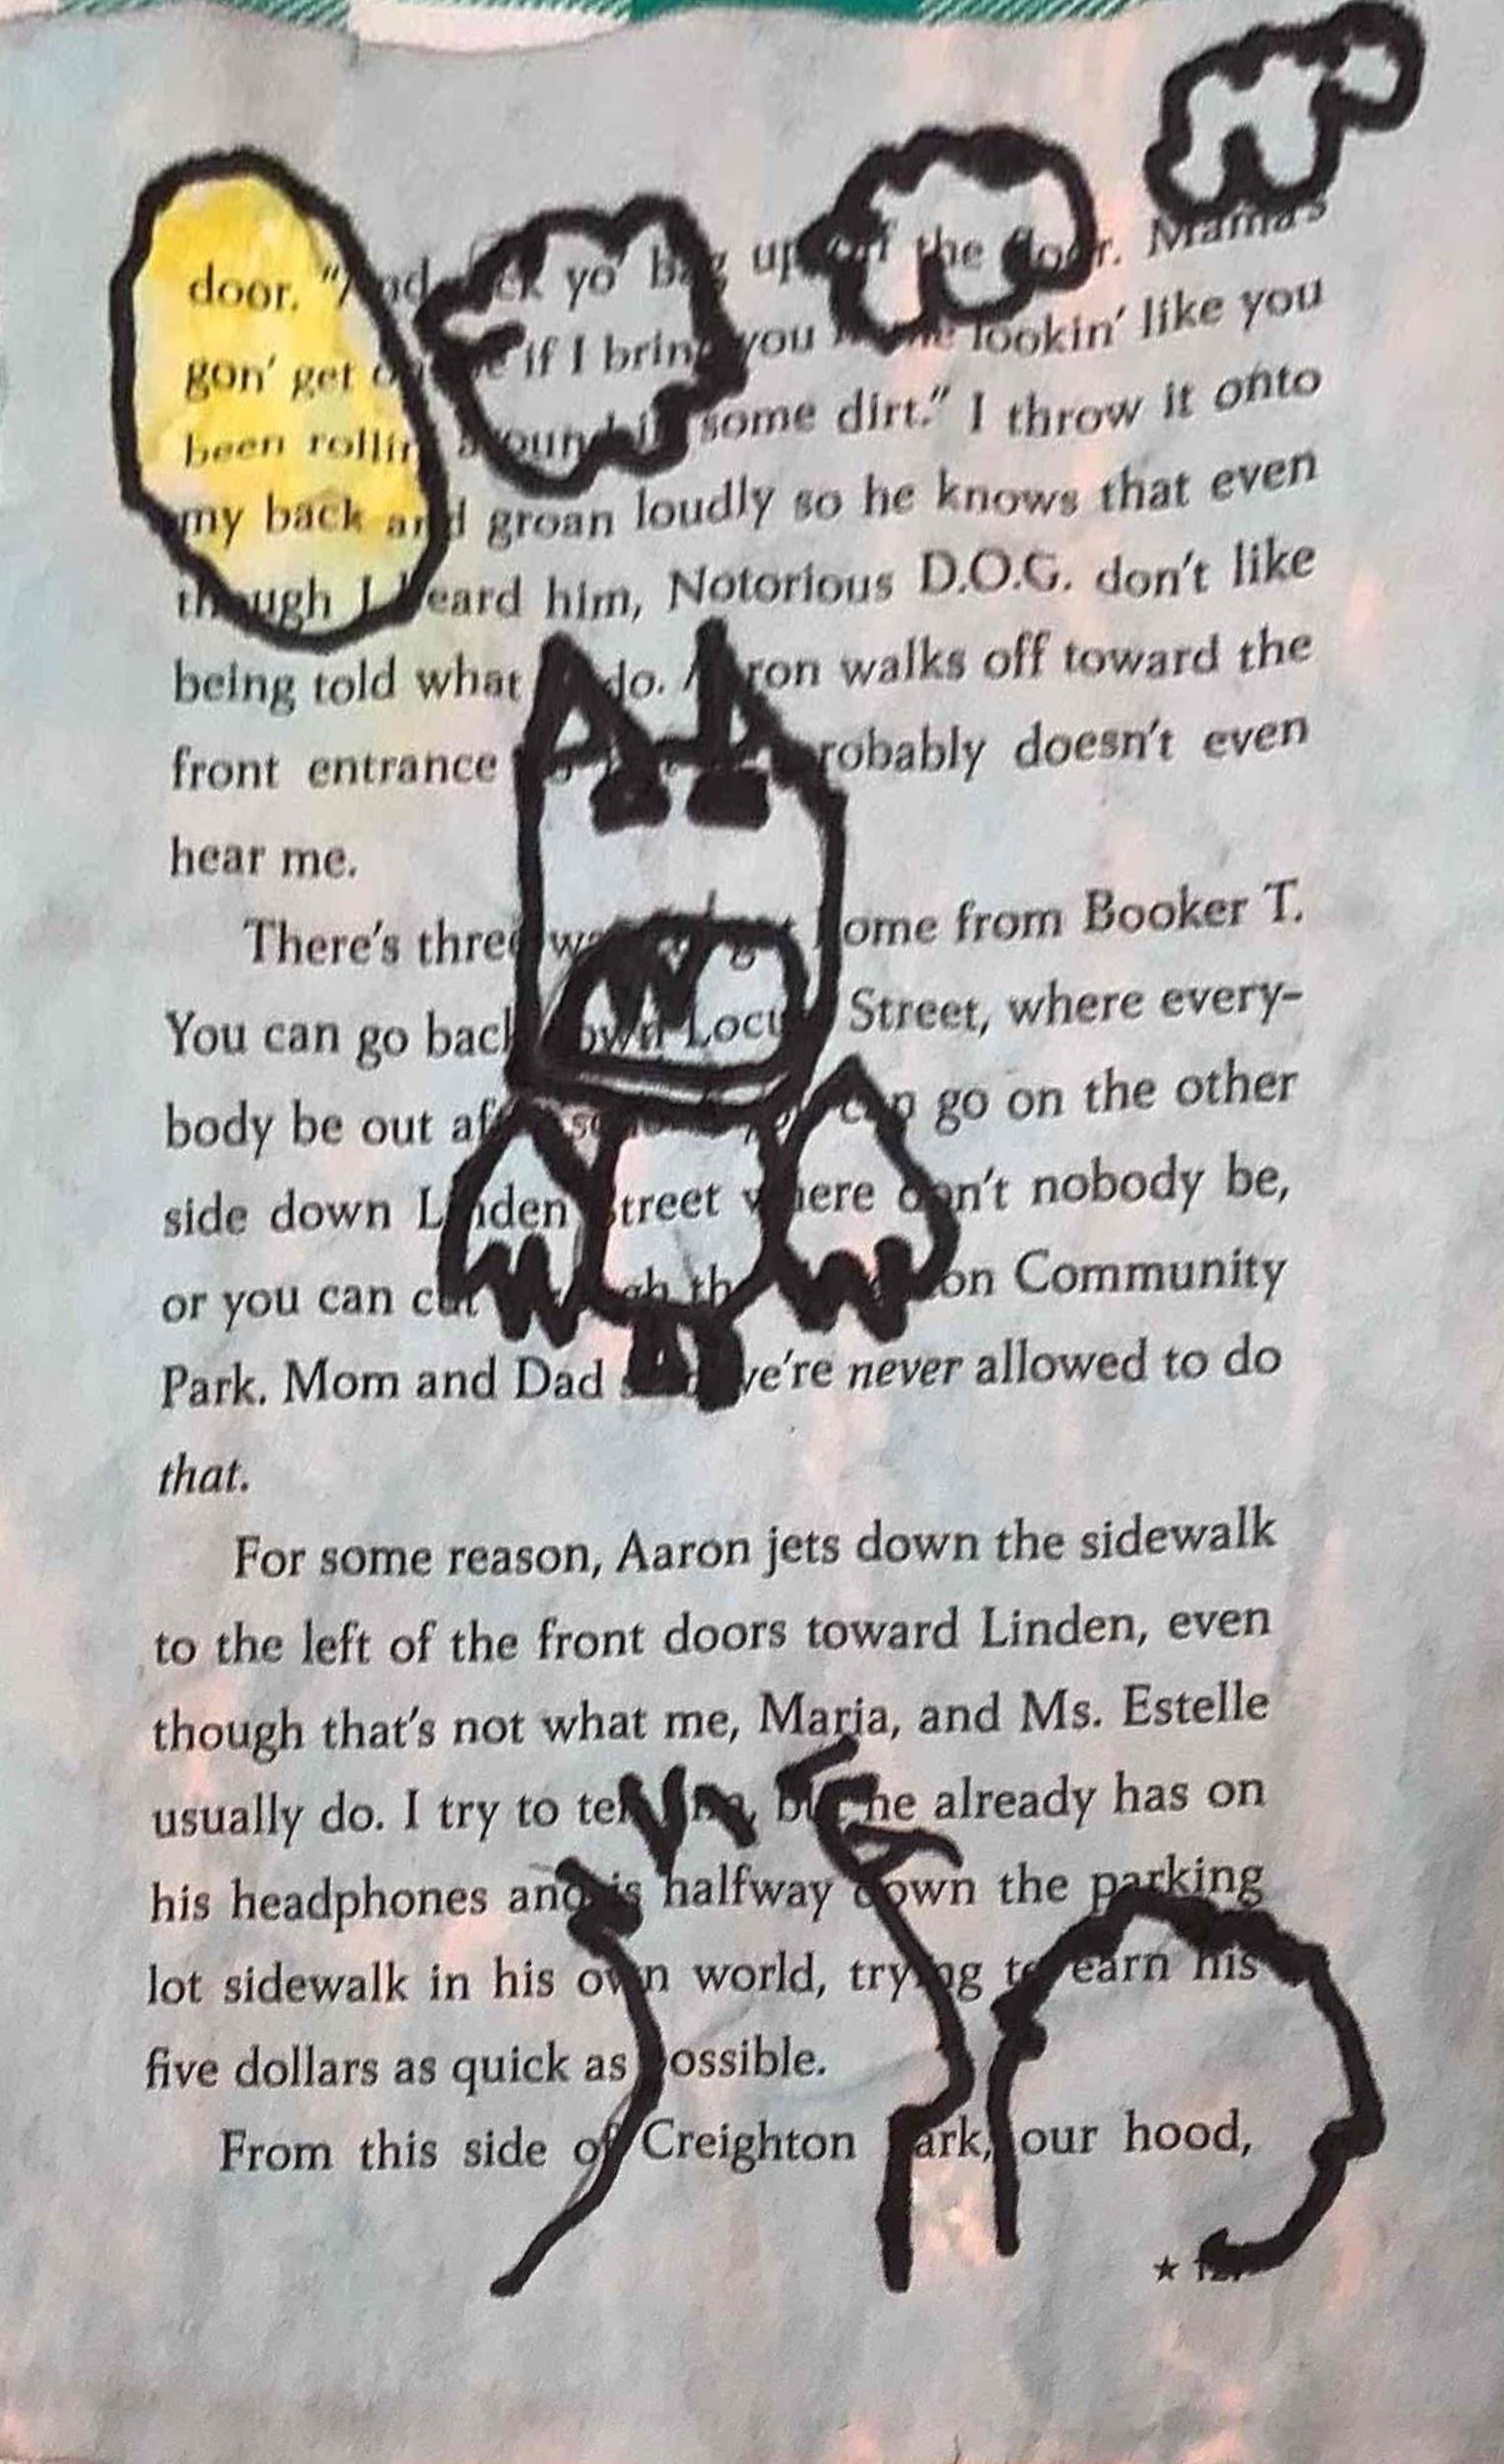 door. "And yo' bag up off the floor. Mama's
gon' get if I bring you lookin' like you
been rollin' around in some dirt." I throw it onto
my back and groan loudly so he knows that even
though I heard him, Notorious D.O.G. don't like
being told what do. Aaron walks off toward the
front entrance probably doesn't even
hear me.
There's three get home from Booker T.
You can go back down Locust Street, where every-
body be out can go on the other
side down Linden Street where don't nobody be,
or you can cut Community
Park. Mom and Dad we're never allowed to do
that.
For some reason, Aaron jets down the sidewalk
to the left of the front doors toward Linden, even
though that's not what me, Maria, and Ms. Estelle
usually do. I try to tell but he already has on
his headphones and is halfway down the parking
lot sidewalk in his own world, trying to earn his
five dollars as quick as possible.
From this side of Creighton Park, our hood,
★